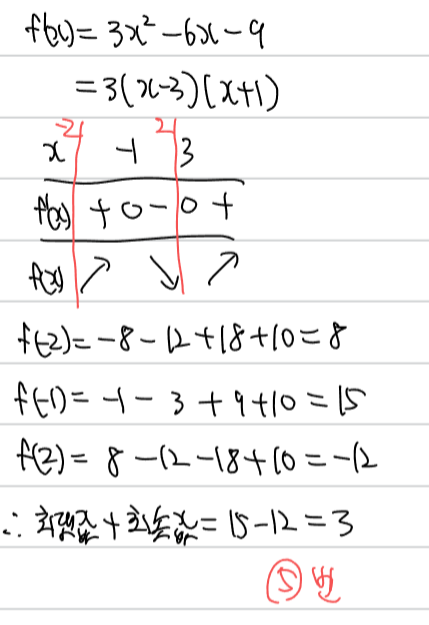 f'(x) = 3x² - 6x - 9
= 3(x-3)(x+1)
x -2 -1 2 3
f'(x) + 0 - 0 +
f(x) ↗ ↘ ↗
f(-2) = -8 - 12 + 18 + 10 = 8
f(-1) = -1 - 3 + 9 + 10 = 15
f(2) = 8 - 12 - 18 + 10 = -12
∴ 최댓값 + 최솟값 = 15 - 12 = 3
⑤번